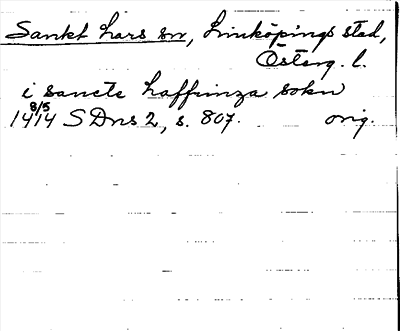 Sankt Lars sn, Linköpings stad,
Österg. l.
i sancte haffrinza sokn
1414 8/5 SDns 2, s. 807. orig.